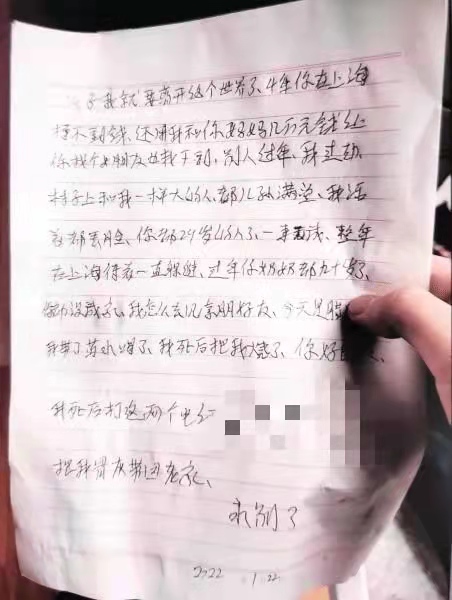 子我就要离开这个世界了、4年你在上海
挣不到钱、还用我和你妈妈几万元钱让
你找个女朋友也找不到、别人过年、我
村子上和我一样大的人、都儿孙满堂、我活
着都丢脸、你都29岁的人了、一事无成、整年
在上海待着一直躲避、过年你奶奶都九十岁了、
你都没成家、我怎么去见亲朋好友、今天是腊
我带了药水喝了、我死后把我火烧了、你好
我死后打这两个电话
把我骨灰带回老家、
永别了
2022 1.22